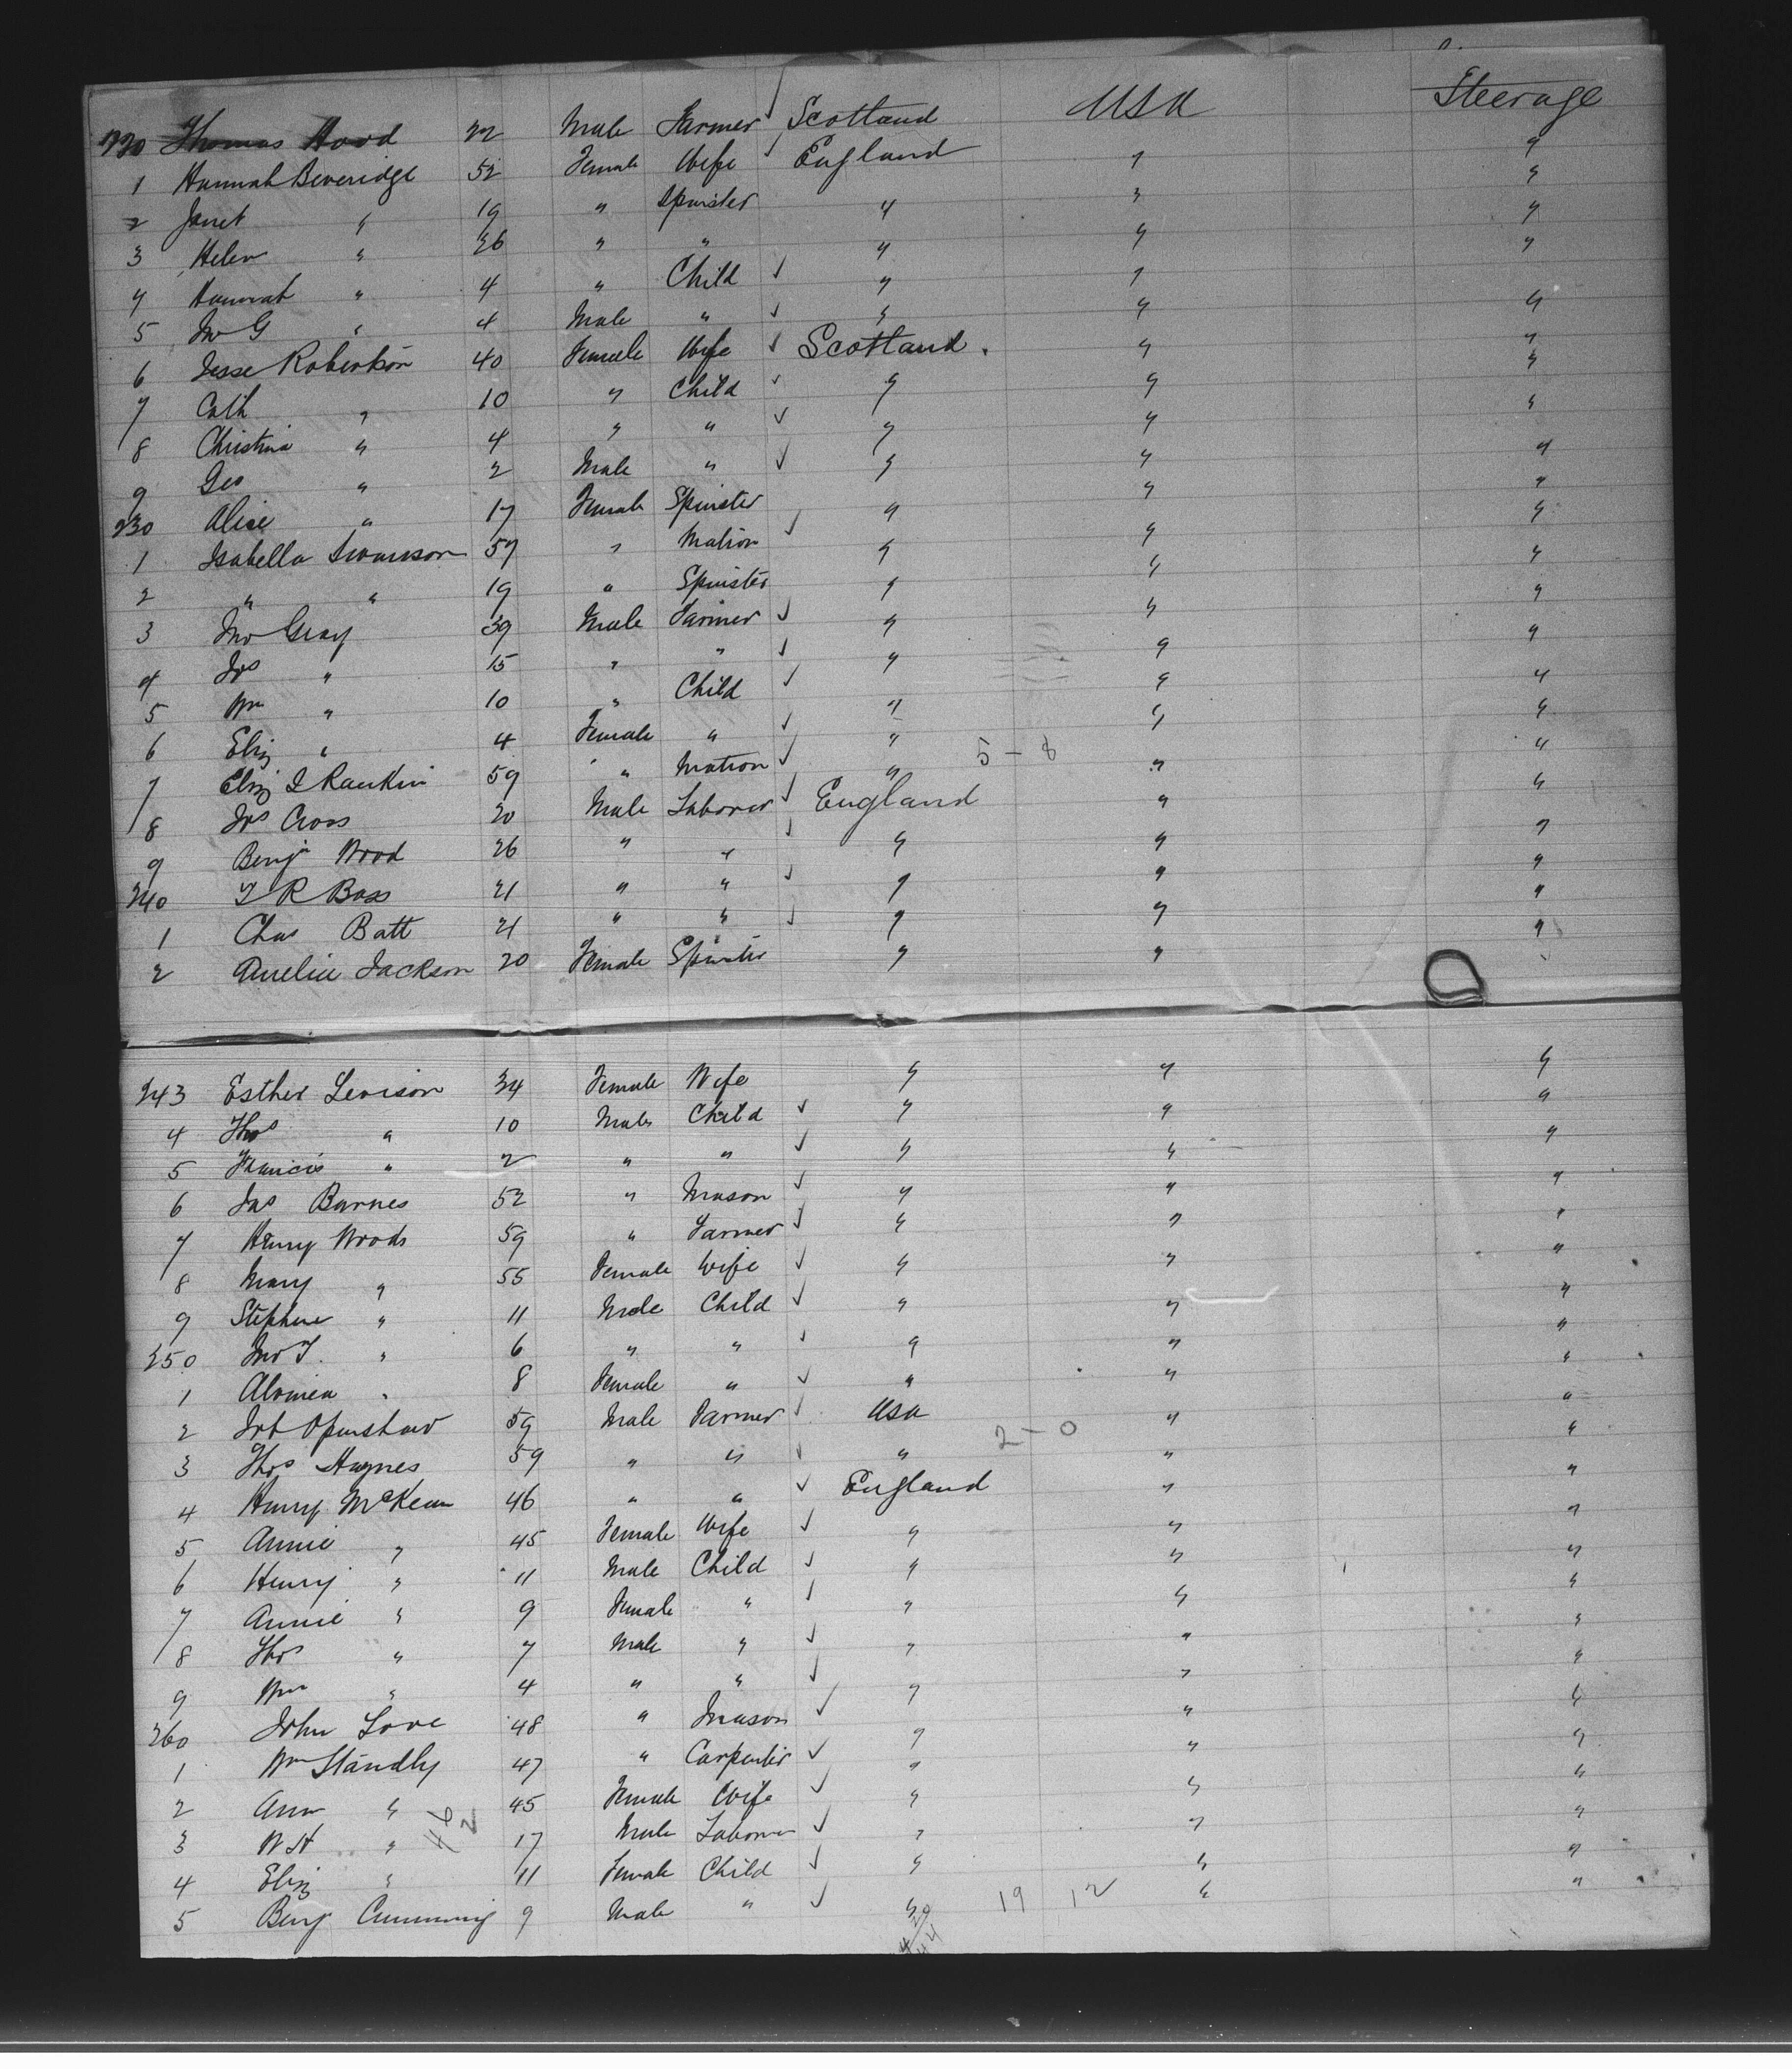 220 Thomas Hood 22 Male Farmer ✓ Scotland USA Steerage
1 Hannah Beveridge 52 Female Wife ✓ England " "
2 Janet " 19 " Spinster " " "
3 Helen " 26 " " " " "
4 Hannah " 4 " Child ✓ " " "
5 Jno G " 4 Male " ✓ " " "
6 Jesse Robertson 40 Female Wife ✓ Scotland. " "
7 Cath " 10 " Child ✓ " " "
8 Christina " 4 " " ✓ " " "
9 Geo " 2 Male " ✓ " " "
230 Alice " 17 Female Spinster " " "
1 Isabella Swanson 57 " Matron ✓ " " "
2 " " 19 " Spinster " " "
3 Jno Gray 39 Male Farmer ✓ " " "
4 Jos " 15 " " ✓ " " "
5 Wm " 10 " Child ✓ " " "
6 Eliz " 4 Female " ✓ " " "
7 Eliz Rankin 59 " Matron ✓ " 5 - 8 " "
8 Jos Cross 20 Male Laborer ✓ England " "
9 Benjn Wood 26 " " ✓ " " "
240 T R Bass 21 " " ✓ " " "
1 Chas Batt 21 " " ✓ " " "
2 Amelia Jackson 20 Female Spinster " " "
243 Esther Levison 34 Female Wife " " "
4 Thos " 10 Male Child ✓ " " "
5 Francis " 2 " " ✓ " " "
6 Jas Barnes 52 " Mason ✓ " " "
7 Henry Woods 59 " Farmer ✓ " " "
8 Mary " 55 Female Wife ✓ " " "
9 Stephen " 11 Male Child ✓ " " "
250 Jno T. " 6 " " ✓ " " "
1 " 8 Female " ✓ " " "
2 Openshaw 59 Male Farmer ✓ USA 2 - 0 " "
3 Thos Haynes 59 " " ✓ " " "
4 Henry McKean 46 " " ✓ England " "
5 Annie " 45 Female Wife ✓ " " "
6 Henry " 11 Male Child ✓ " " "
7 Annie " 9 Female " ✓ " " "
8 Thos " 7 Male " ✓ " " "
9 Wm " 4 " " ✓ " " "
260 John Love 48 " Mason ✓ " " "
1 Wm Standly 47 " Carpenter ✓ " " "
2 Ann " 45 Female Wife ✓ " " "
3 W H " 17 Male Laborer ✓ " " "
4 Eliz " 11 Female Child ✓ " " "
5 Benj Cumming 9 Male " ✓ " 19 12 " "